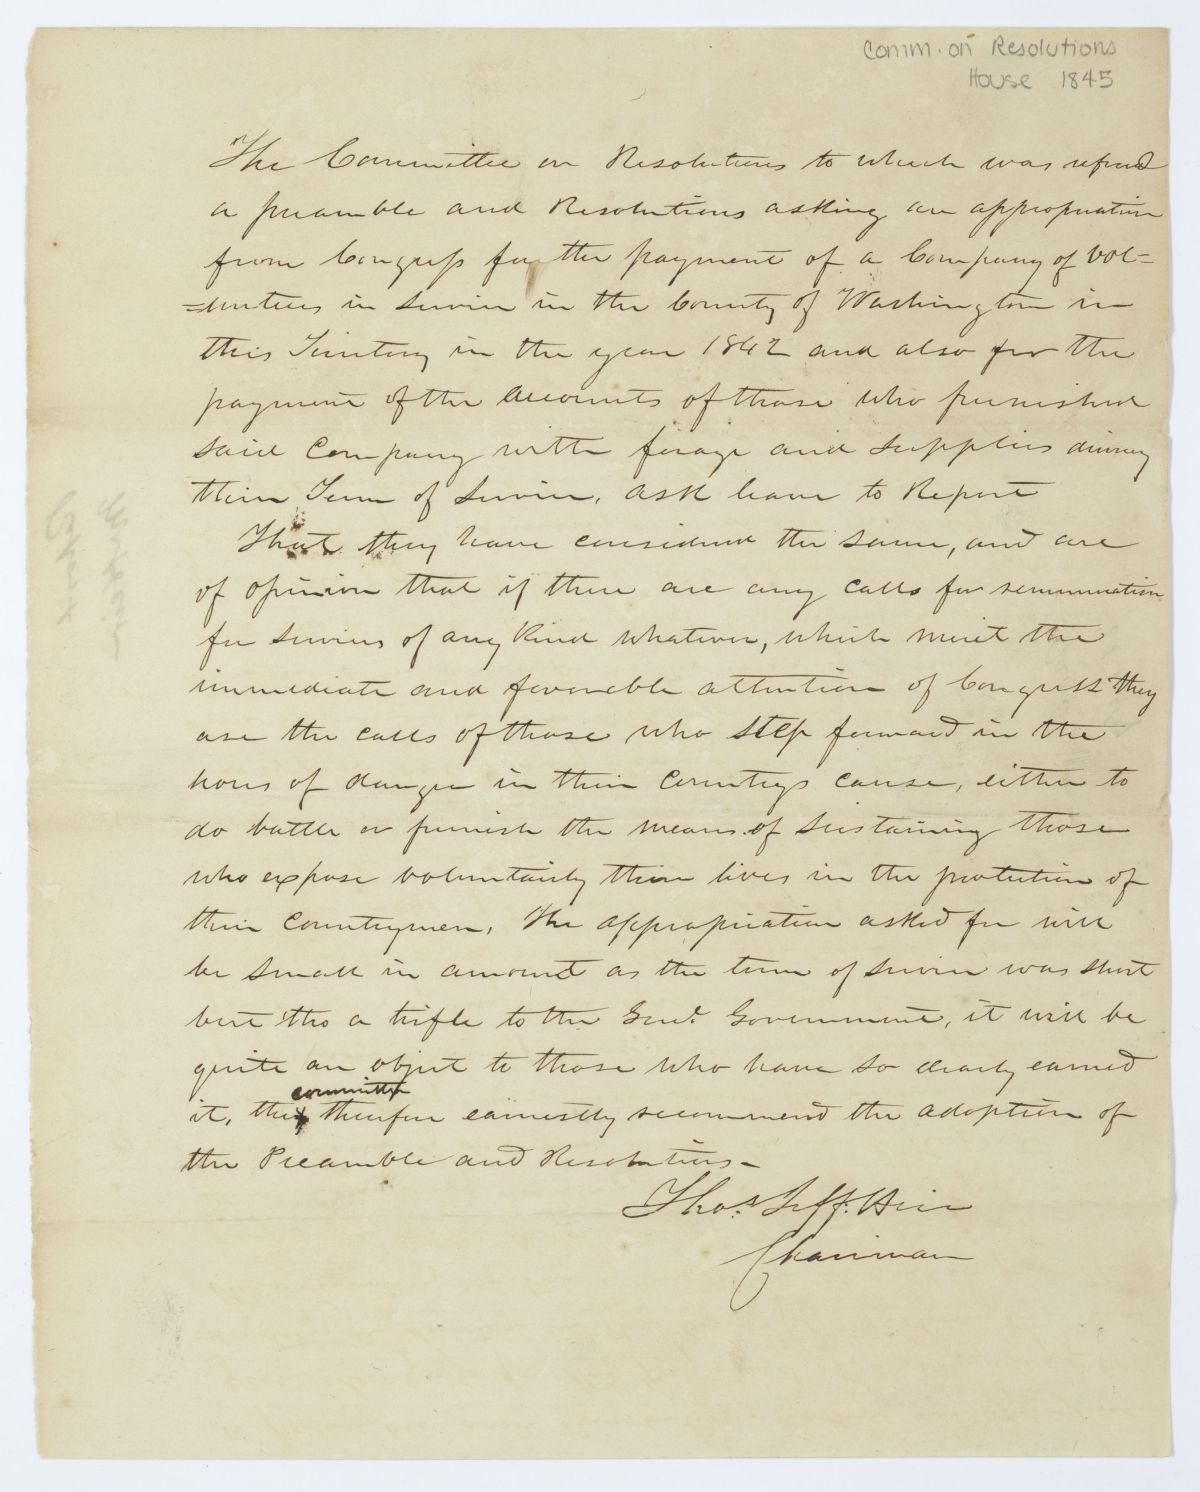 Comm. on Resolutions
House 1845
The Committee on Resolutions to which was refered
a preamble and Resolutions asking an appropriation
from Congress for the payment of a Company of vol=
=unteers in service in the County of Washington in
this Territory in the year 1842 and also for the
payment of the accounts of those who furnished
said Company with forage and supplies during
their Term of Service, ask leave to Report
That they have considered the same, and are
of opinion that if there are any calls for remuneration
for services of any kind whatever, which merit the
immediate and favorable attention of Congress they
are the calls of those who step forward in the
hours of danger in their Countrys cause, either to
do battle or furnish the means of sustaining those
who expose voluntarily their lives in the protection of
their Countrymen. The appropriation asked for will
be small in amount as the term of service was short
but tho a trifle to the Genl. Government, it will be
quite an object to those who have so dearly earned
committee
it, the therefore earnestly recommend the adoption of
the Preamble and Resolutions-
Thos. Jeff.
Chairman